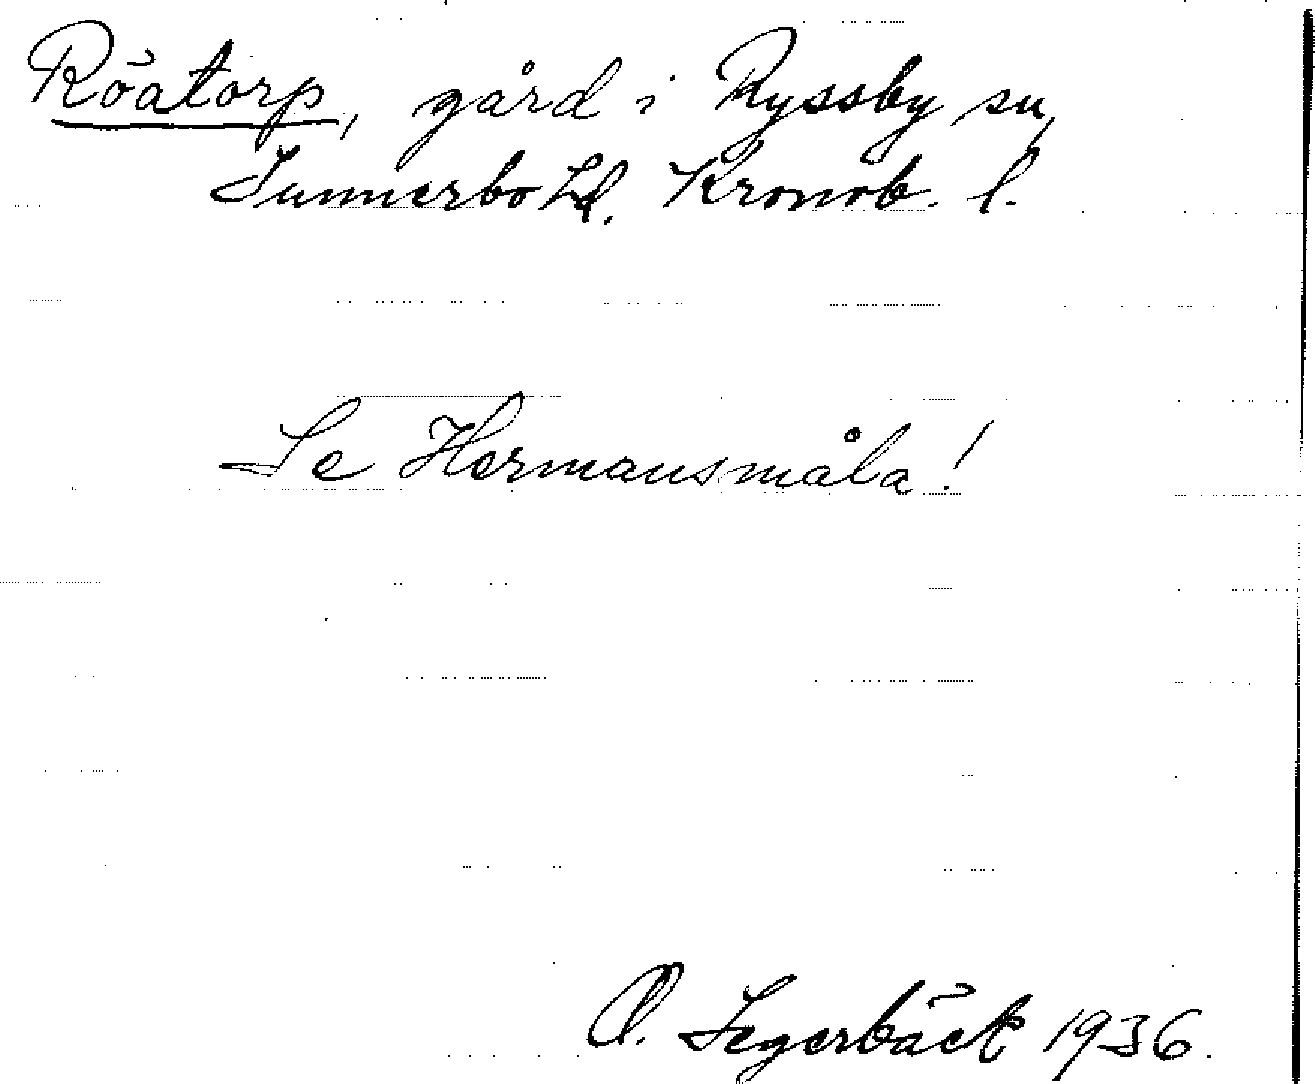 Röatorp, gård i Ryssby sn,
Sunnerbo hd. Kronob. l.
Se Hermansmåla!
O. Segerbäck 1936.